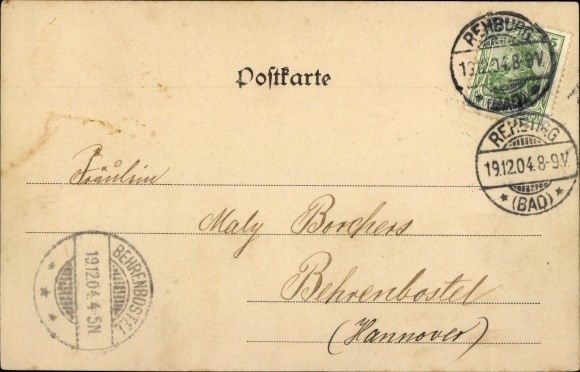 REHBURG
19.12.04.8-9V.
* (BAD) *
5
Postkarte
REHBURG
19.12.04.8-9.V.
* (BAD) *
Fräulein
Maly Borchers
Behrenbostel
(Hannover)
BEHRENBOSTEL
19.12.04.4-5N
* * *